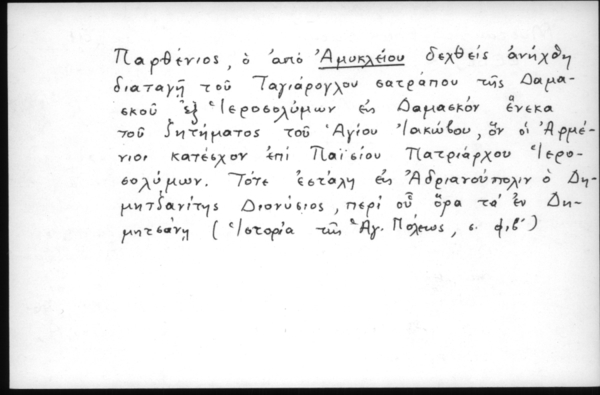 Παρθένιος, ὁ ἀπό Ἀμυκλείου δεχθείς ἀνήχθη
διαταγῇ τοῦ Ταγιάρογλου σατράπου τῆς Δαμα-
σκοῦ ἐξ Ἱεροσολύμων εἰς Δαμασκόν ἕνεκα
τοῦ ζητήματος τοῦ Ἁγίου Ἰακώβου, ὅν οἱ Ἀρμέ-
νιοι κατέσχον ἐπί Παϊσίου Πατριάρχου Ἱερο-
σολύμων. Τότε ἐστάλη εἰς Ἀδριανούπολιν ὁ Δη-
μητζανίτης Διονύσιος, περί οὗ ὅρα τά ἐν Δη-
μητσάνῃ (Ἱστορία τῆς Ἁγ. Πόλεως, σ.